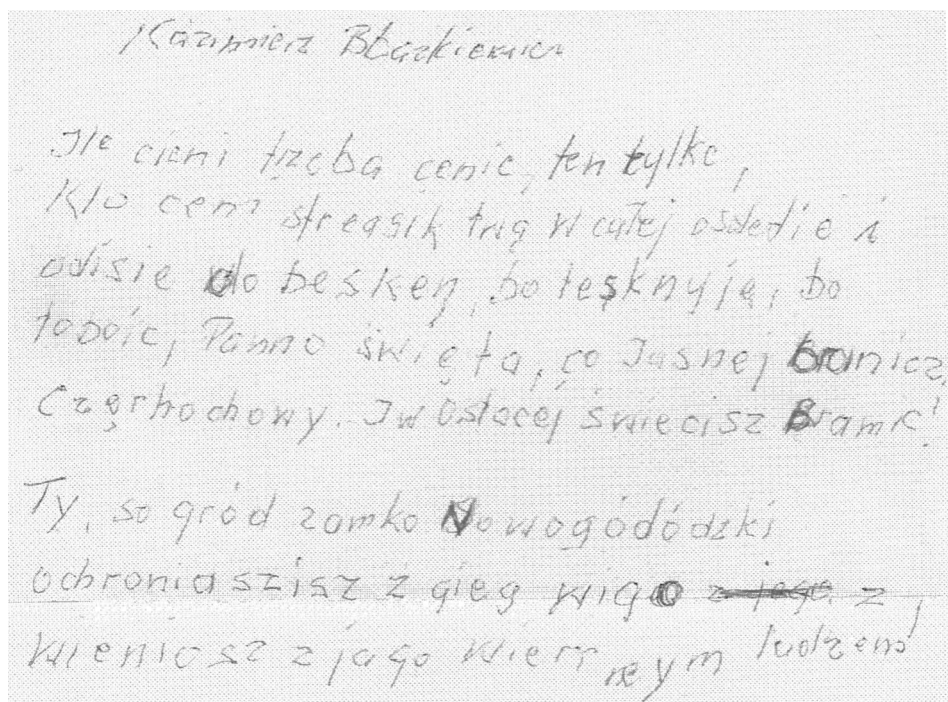 Kazimierz Błaszkiewicz
Ile cieni trzeba cenic, ten tylko,
Kto ceni stregsik twą w całej osdedie i
odisie do besken, bo tesknyję, bo
tobóic, Panno święta, co Jasnej branicz
Częrhochowy. I w Ostocej świecisz Bramie!
Ty, so gród zamko Nowogódódzki
ochroniaszisz z gieg wigo z
wieniosz z jago wierr nym ludzem!